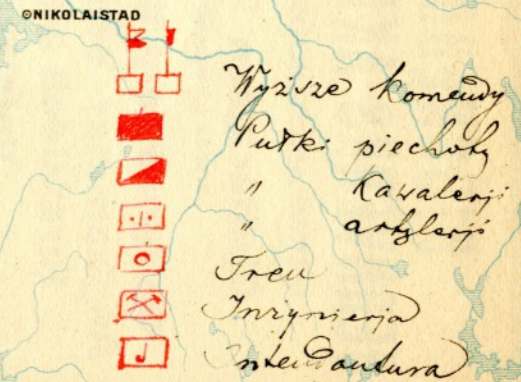 ©NIKOLAISTAD
Wyższe komendy
Pułki piechoty
" Kawalerji
" artylerji
Tren
Inżynierja
J Intendantura